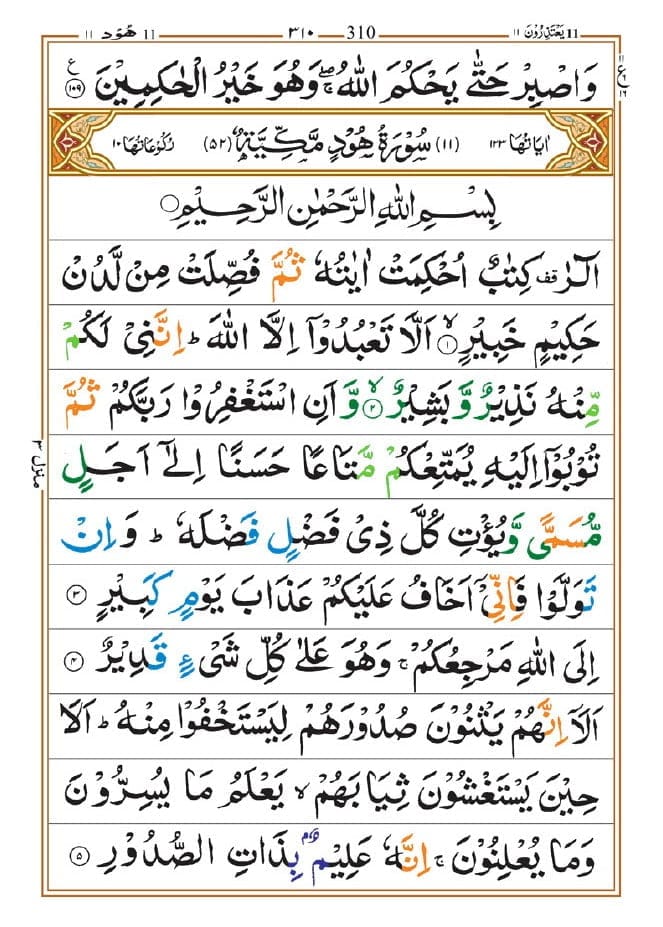 11 يَعْتَذِرُوْنَ ١١ 310 ٣١٠ 11 هُوْد ١١
وَاصْبِرْ حَتّٰى يَحْكُمَ اللّٰهُ ۖۚ وَهُوَ خَيْرُ الْحٰكِمِيْنَ ۝١٠٩ ع
اٰيَاتُهَا ١٢٣ (١١) سُوْرَةُ هُوْدٍ مَّكِّيَّةٌ (٥٢) رُكُوْعَاتُهَا ١٠
بِسْمِ اللّٰهِ الرَّحْمٰنِ الرَّحِيْمِ
الٓرٰ ۫ قف كِتٰبٌ اُحْكِمَتْ اٰيٰتُهٗ ثُمَّ فُصِّلَتْ مِنْ لَّدُنْ
حَكِيْمٍ خَبِيْرٍ ۙ۝١ اَلَّا تَعْبُدُوْۤا اِلَّا اللّٰهَ ؕ اِنَّنِيْ لَكُمْ
مِّنْهُ نَذِيْرٌ وَّبَشِيْرٌ ۙ۝٢ وَّاَنِ اسْتَغْفِرُوْا رَبَّكُمْ ثُمَّ
تُوْبُوْۤا اِلَيْهِ يُمَتِّعْكُمْ مَّتَاعًا حَسَنًا اِلٰۤى اَجَلٍ
مُّسَمًّى وَّيُؤْتِ كُلَّ ذِيْ فَضْلٍ فَضْلَهٗ ؕ وَاِنْ
تَوَلَّوْا فَاِنِّيْۤ اَخَافُ عَلَيْكُمْ عَذَابَ يَوْمٍ كَبِيْرٍ ۝٣
اِلَى اللّٰهِ مَرْجِعُكُمْ ۚ وَهُوَ عَلٰى كُلِّ شَيْءٍ قَدِيْرٌ ۝٤
اَلَاۤ اِنَّهُمْ يَثْنُوْنَ صُدُوْرَهُمْ لِيَسْتَخْفُوْا مِنْهُ ؕ اَلَا
حِيْنَ يَسْتَغْشُوْنَ ثِيَابَهُمْ ۙ يَعْلَمُ مَا يُسِرُّوْنَ
وَمَا يُعْلِنُوْنَ ۚ اِنَّهٗ عَلِيْمٌۢ بِذَاتِ الصُّدُوْرِ ۝٥
منزل ٣